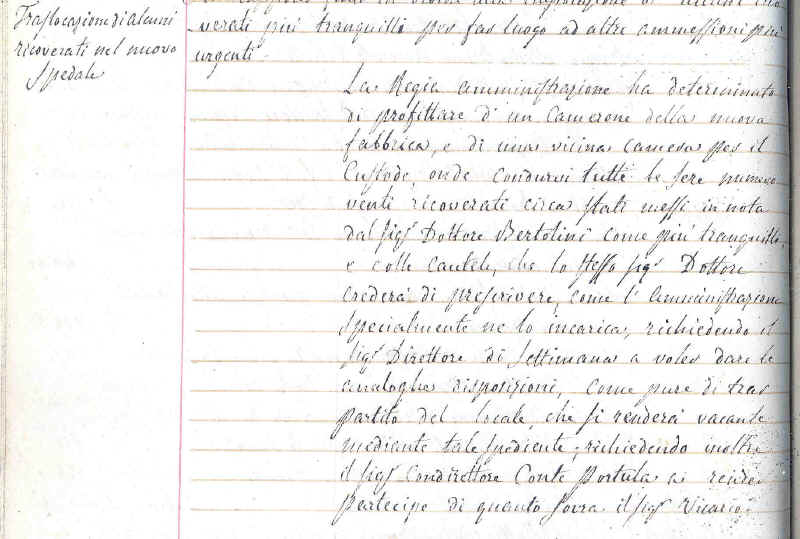 Traslocazione di alcuni
ricoverati nel nuovo
Spedale
verati più tranquilli per far luogo ad altre ammessioni più
urgenti.
La Regia amministrazione ha determinato
di profittare d'un Camerone della nuova
fabbrica, e di una vicina camera per il
Custode, onde condurvi tutte le sere numero
venti ricoverati circa stati messi in nota
dal sigr Dottore Bertolini come più tranquilli,
e colle cautele, che lo stesso sigr Dottore
crederà di prescrivere, come l'amministrazione
specialmente ne lo incarica, richiedendo il
sigr Direttore di settimana a voler dare le
analoghe disposizioni, come pure di trar
partito del locale, che si renderà vacante
mediante tale spediente; richiedendo inoltre
il sigr Condirettore Conte Portula a render
partecipe di quanto sovra il sigr Vicario.